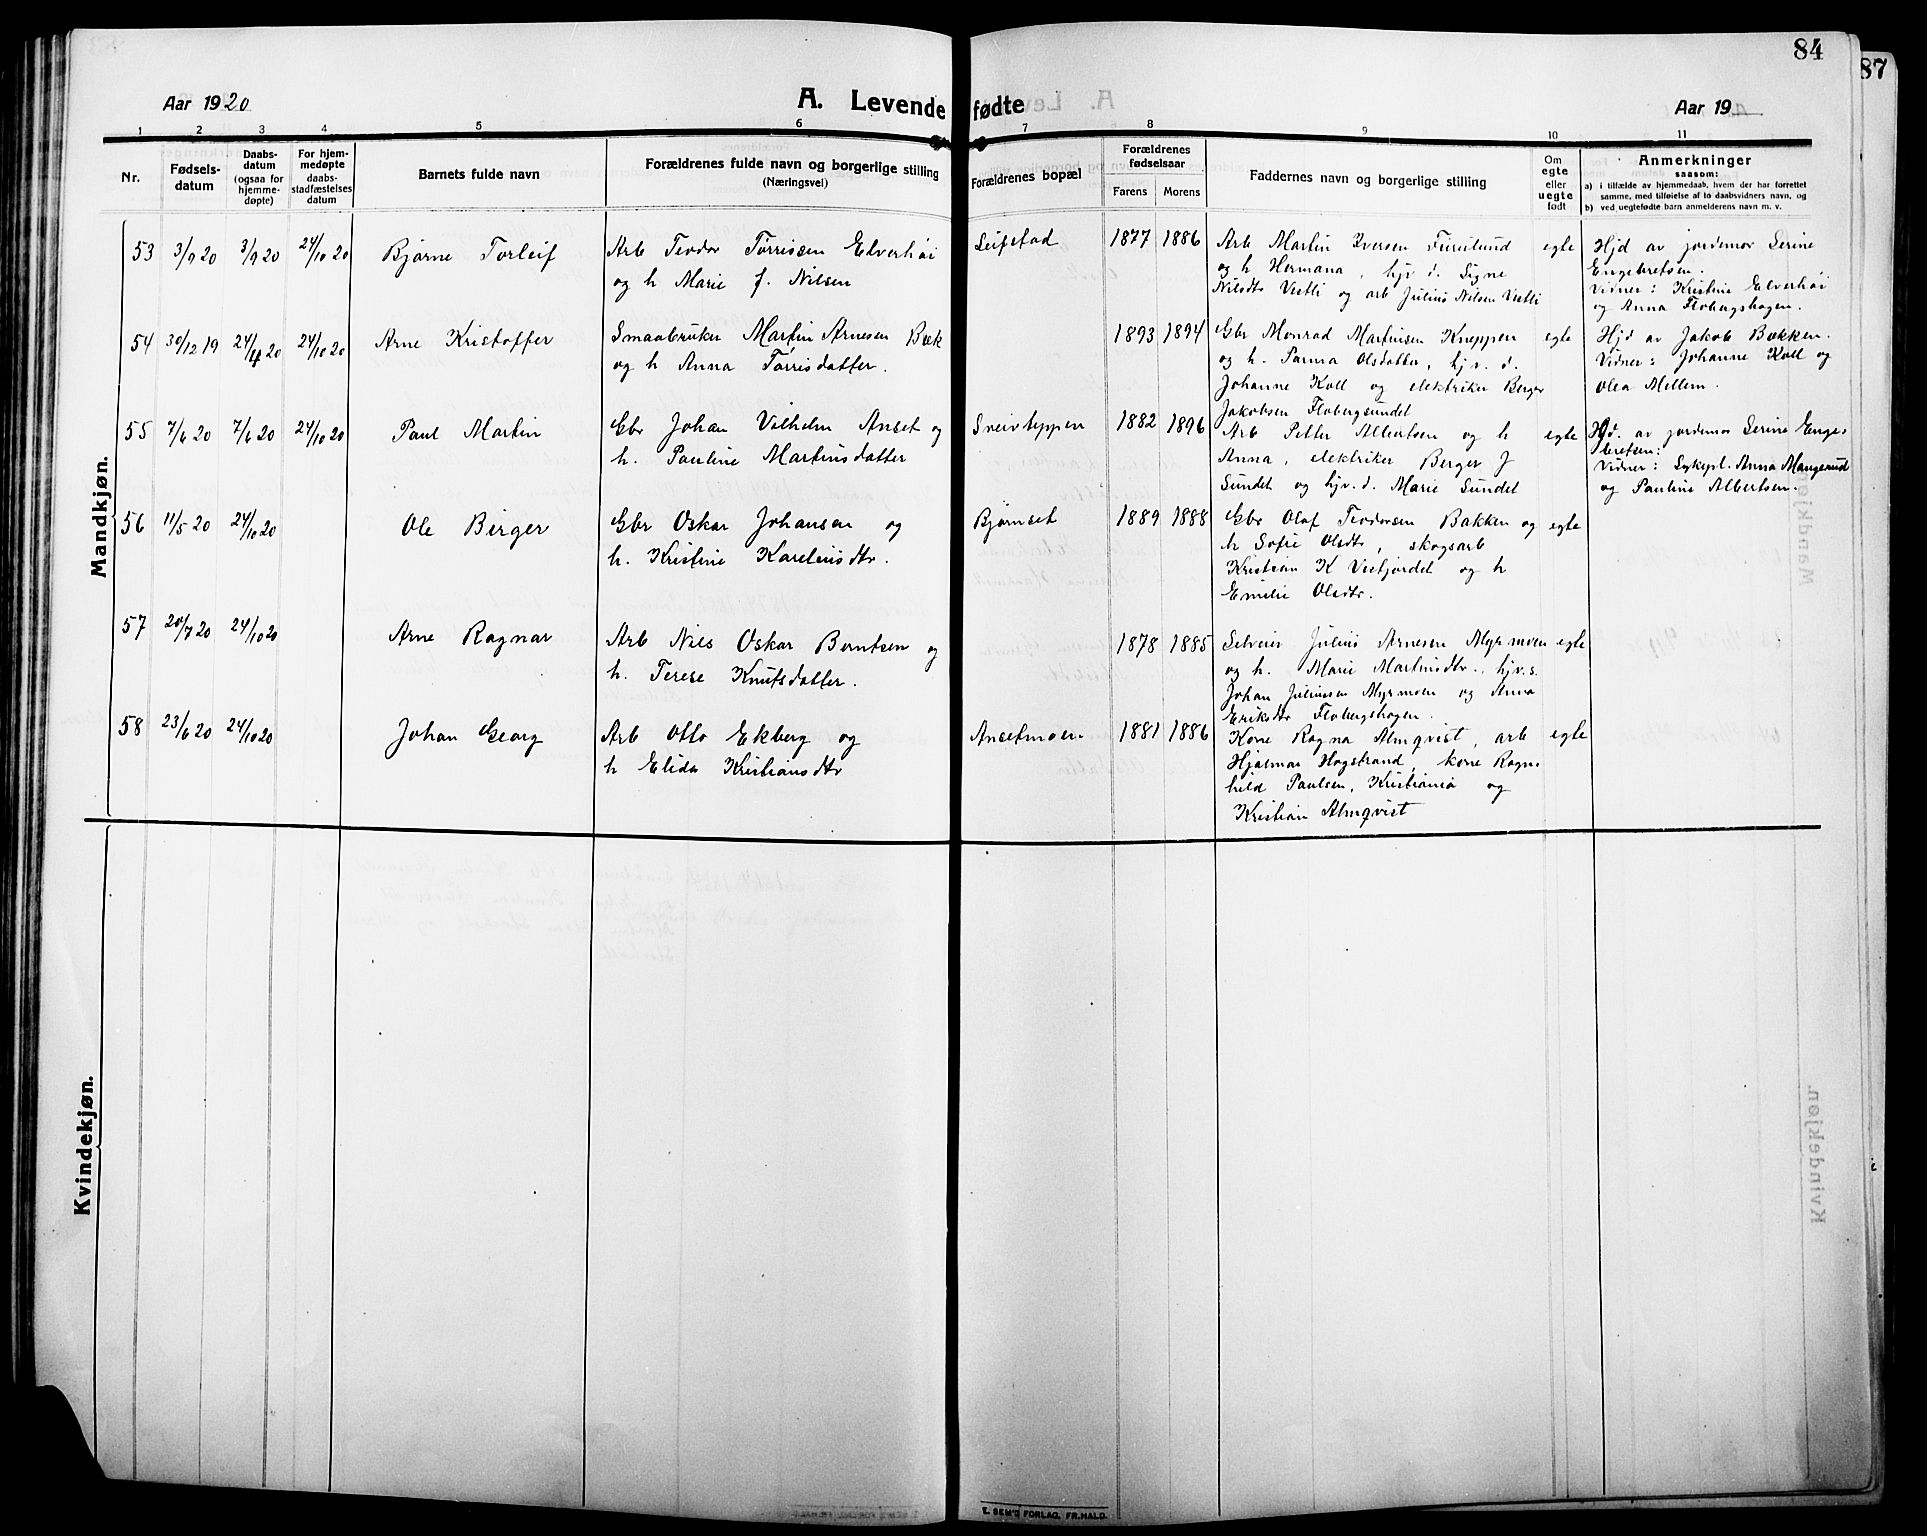 84
87
Aar 1920
A. Levende fødte
Aar 19
1 2 3 4 5 6 7 8 9 10 11
Nr.
Fødsels-
datum
Daabs-
datum
(ogsaa for
hjemme-
døpte)
For hjem-
medøpte
daabs-
stadfæstelses
datum
Barnets fulde navn
Forældrenes fulde navn og borgerlige stilling
(Næringsvei)
Forældrenes bopæl
Forældrenes
fødselsaar
Farens Morens
Faddernes navn og borgerlige stilling
Om
egte
eller
uegte
født
Anmerkninger
saasom:
a) i tilfælde av hjemmedaab, hvem der har forrettet
samme, med tilføielse af to daabsvidners navn, og
b) ved uegtefødte barn anmelderens navn m. v.
Mandkjøn.
53 3/9 20 3/9 20 24/10 20 Bjarne Torleif
Arb Teodor Torrissen Elverhøi
og h Marie f. Nilsen
Leifstad 1877 1886
Arb Martin Iversen Furulund
og h Hermana, hjv d. Signe
Nilsdtr Vestli og arb Julius Nilsen Vestli
egte
Hjd av jordemor Serine
Engebretsen.
Vidner: Kristine Elverhøi
og Anna Flobergshagen.
54 30/12 19 24/4 20 24/10 20 Arne Kristoffer
Smaabruker Martin Arnesen Bæk
og h Anna Torrisdatter.
1893 1894
Gbr Monrad Martinsen Kneppen
og h. Olsdatter, hjv. d.
Johanne Koll og elektriker Berger
Jakobsen Flobergsundet
egte
Hjd av Jakob Bækken.
Vidner: Johanne Koll og
Olea Mellem.
55 7/6 20 7/6 20 24/10 20 Paul Martin
Gbr Johan Vilhelm Anset og
h. Pauline Martinsdatter
Sveivteppen 1882 1896
Arb Petter Albertsen og h
Anna, elektriker Berger J
Sundet og hjv. d. Marie Sundet
egte
Hjd. av jordemor Serine Enge-
bretsen:
Vidner: Sykepl. Anna Mangerud
og Pauline Albertsen.
56 11/5 20 24/10 20 Ole Birger
Gbr Oskar Johansen og
h. Kristine Kareliusdtr.
Bjørnset 1889 1888
Gbr Olaf Teodorsen Bakken og
h Sofie Olsdtr, skogsarb
Kristian K Vesfjordet og h
Emilie Olsdtr.
egte
57 20/7 20 24/10 20 Arne Ragnar
Arb Nils Oskar Berntsen og
h. Terese Knutsdatter.
1878 1885
Selveier Julius Arnesen Myrmoen
og h. Marie Martinsdtr., hjv. s.
Johan Juliussen Myrmoen og Anna
Eriksdtr Flobergshagen.
egte
58 23/6 20 24/10 20 Johan Georg
Arb Otto Ekberg og
h Elida Kristiansdtr
Ansetmoen 1881 1886
Kone Ragna Almqvist, arb
Hjalmar Hagstrand, kone Ragn-
hild Paulsen, Kristiania og
Kristian Almqvist
egte
Kvindekjøn.
E. SEM'S FORLAG, FR.HALD.